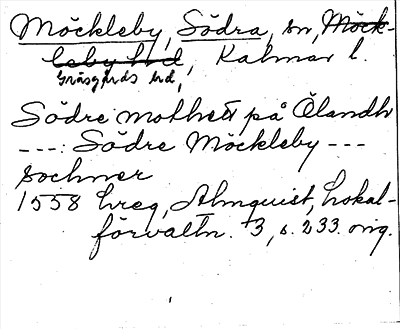 Möckleby, Södra, sn, Möck-
leby hd, Kalmar l.
Gräsgårds hd,
Södre mothett på Ölandh
---: Södre Möckleby ---
sochner
1558 Lreg, Almquist, Lokal-
förvaltn. 3, s. 233. orig.